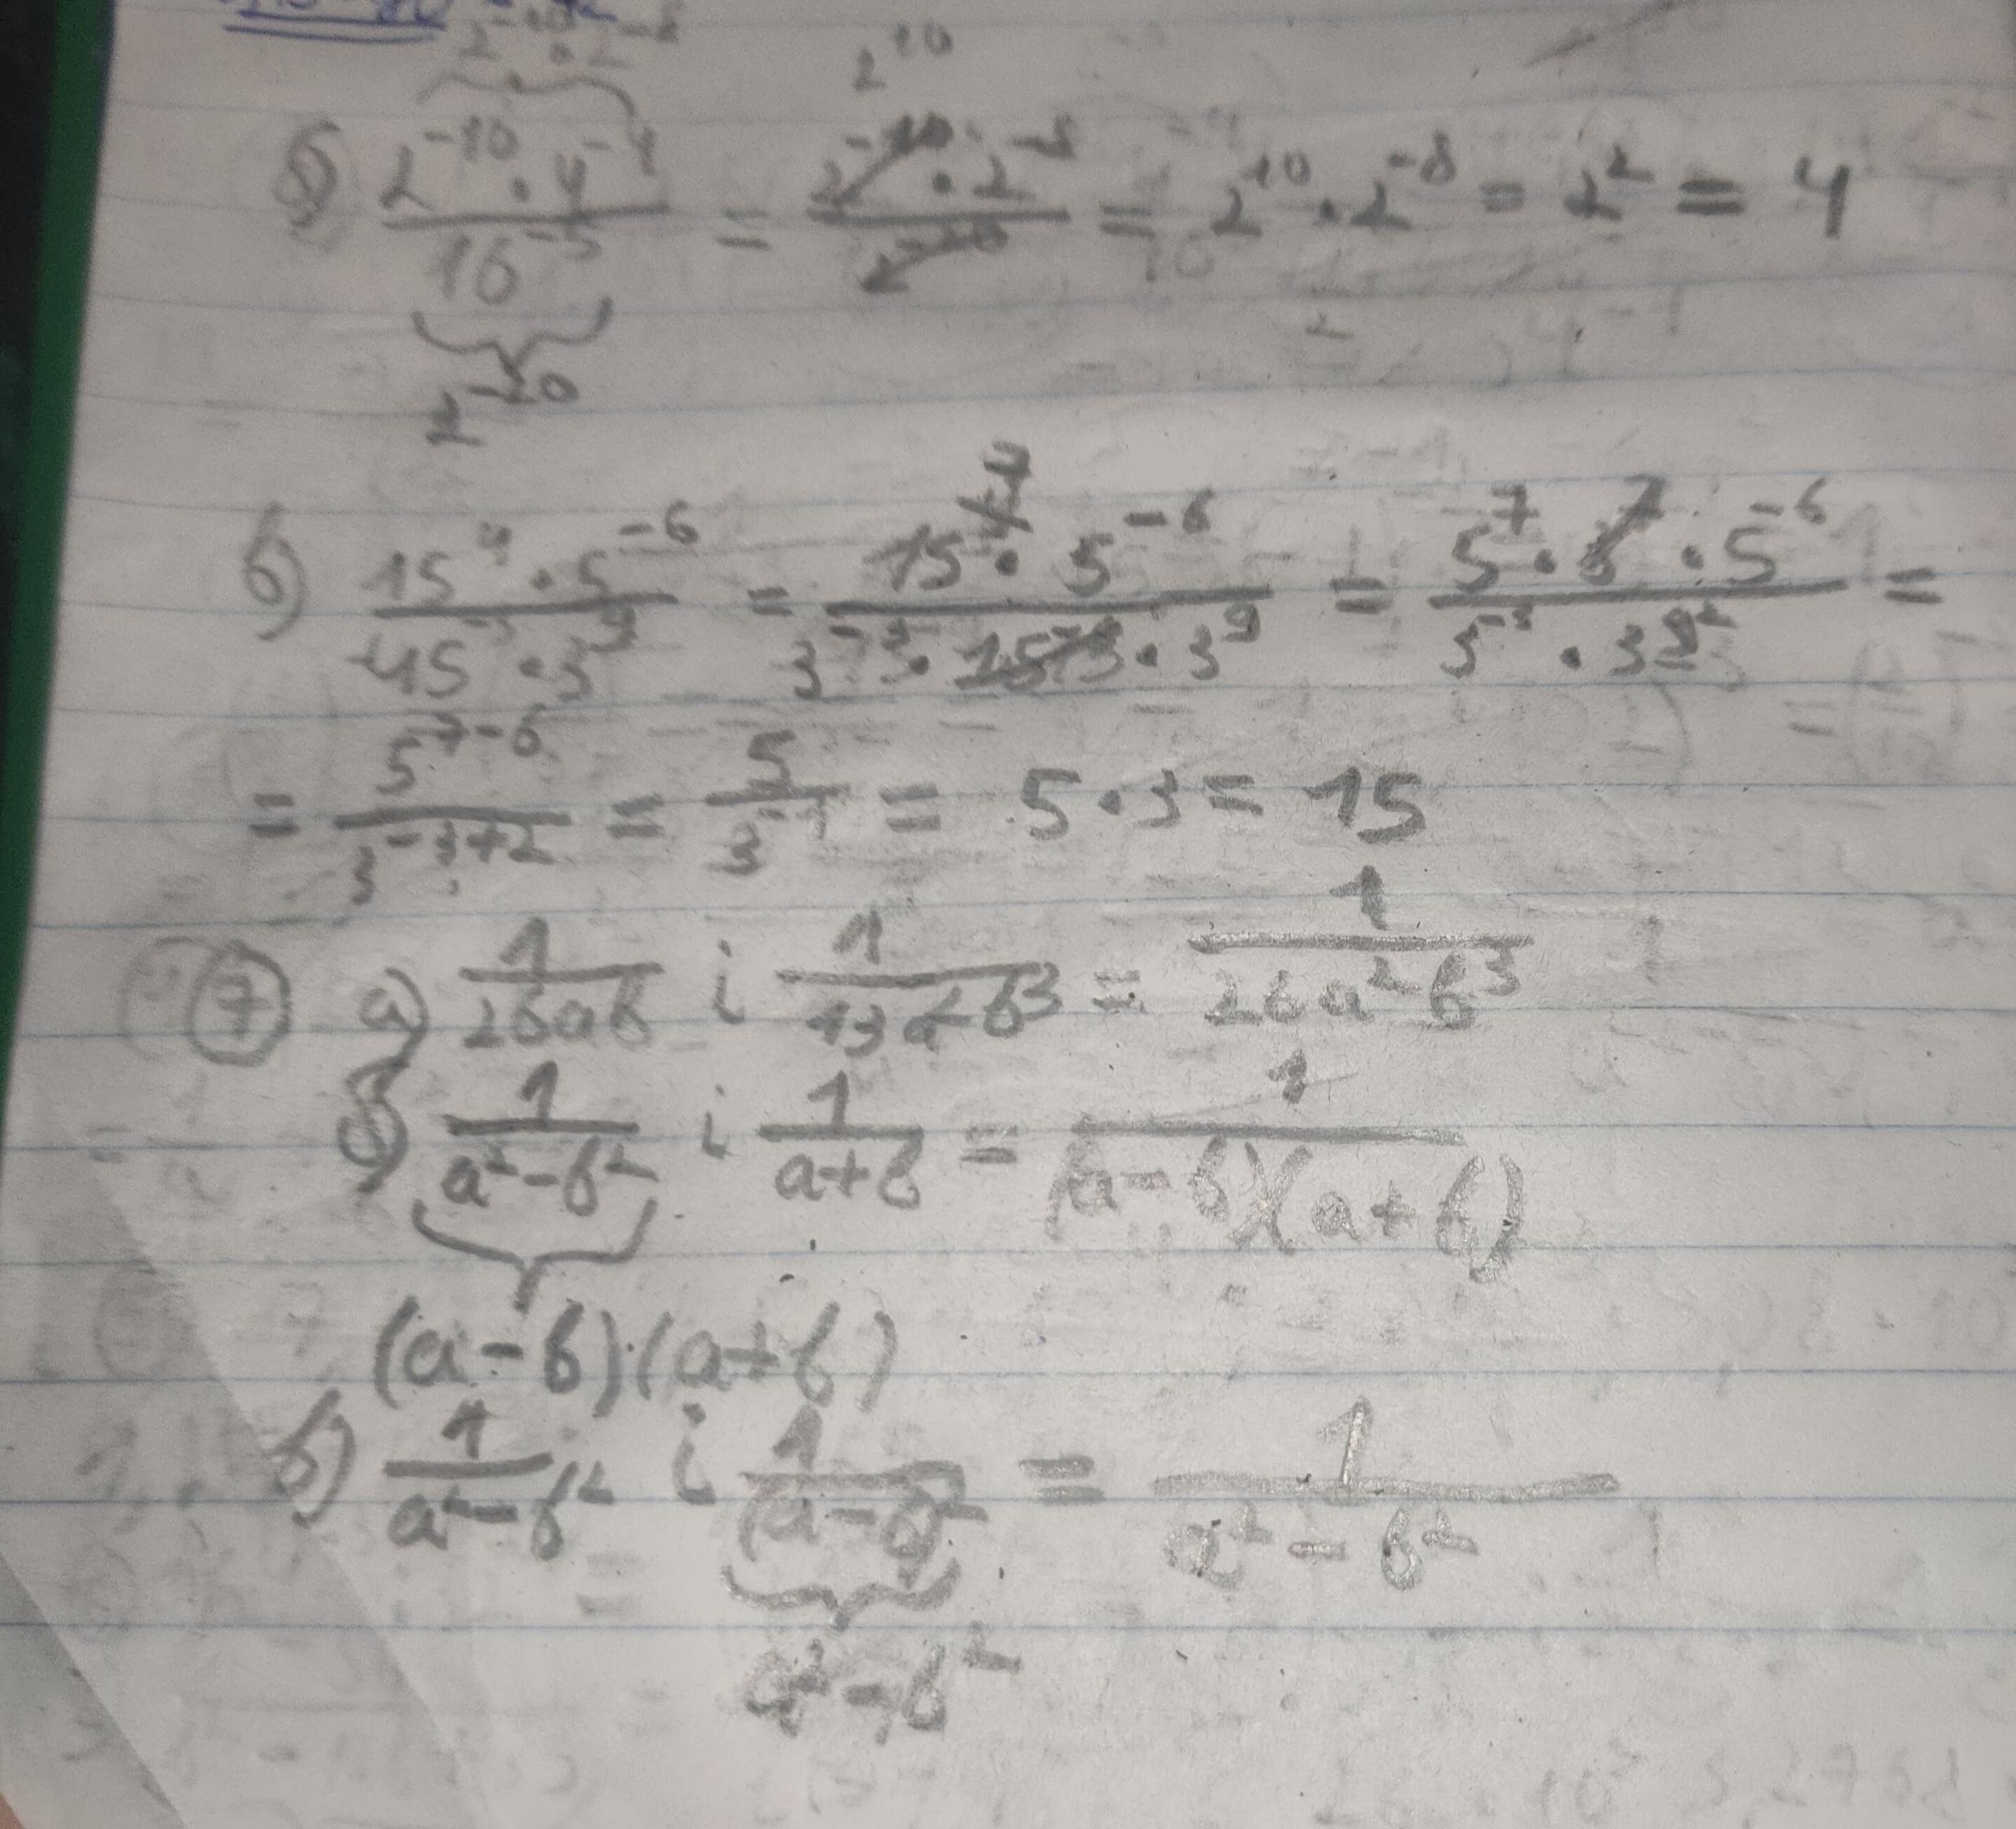 2^-10 · 2^-8
2^10
б) (2^-10 · 4^-4)/(16^-5) = (2^-10 · 2^-8)/(2^-20) = 2^10 · 2^-8 = 2^2 = 4
2^-20
7
в) (15^4 · 5^-6)/(45^-3 · 3^9) = (15^4 · 5^-6)/(3^-3 · 15^-3 · 3^9) = (5^7 · 3^7 · 5^-6)/(3^-3 · 3^9 2) =
= (5^7-6)/(3^-3+2) = 5/(3^-1) = 5 · 3 = 15
7 а) 1/(26ab) і 1/(13a^2b^3) = 1/(26a^2b^3)
б) 1/(a^2-b^2) і 1/(a+b) = 1/((a-b)(a+b))
(a-b)·(a+b)
в) 1/(a^2-b^2) і 1/((a-b)^2) = 1/(a^2-b^2)
a^2-b^2